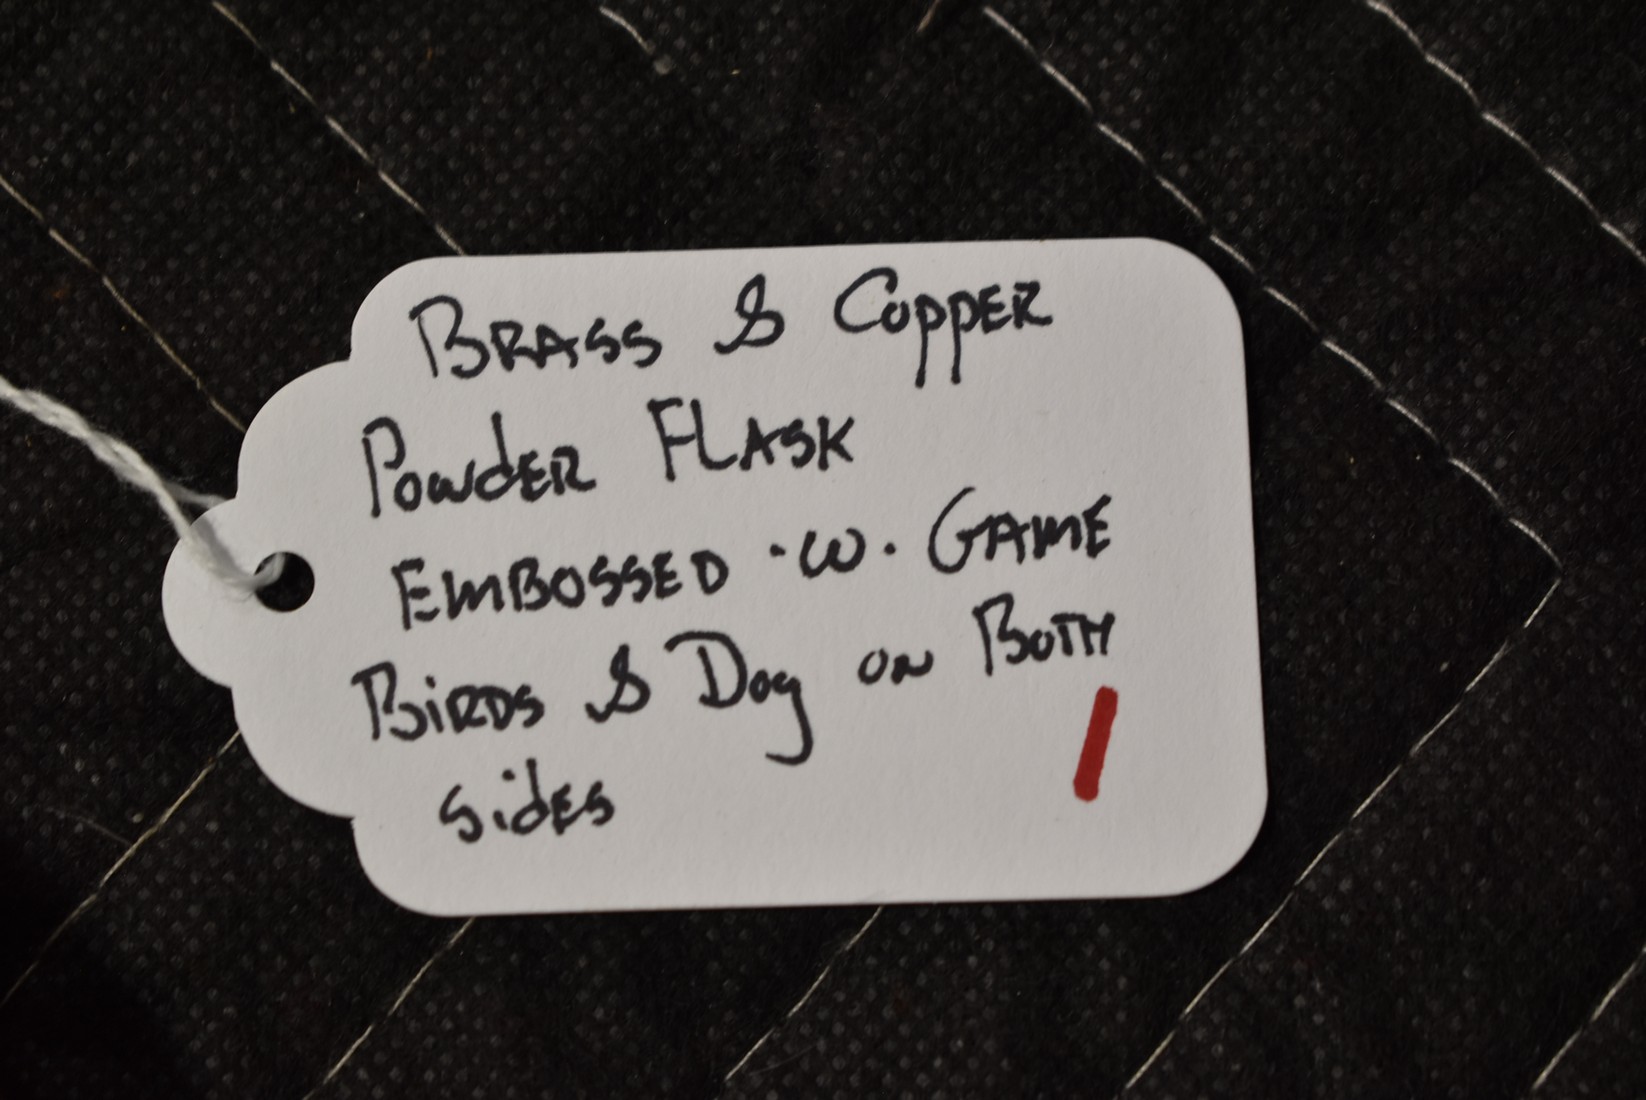 Brass & Copper
Powder Flask
Embossed ·w· Game
Birds & Dog on Both
sides